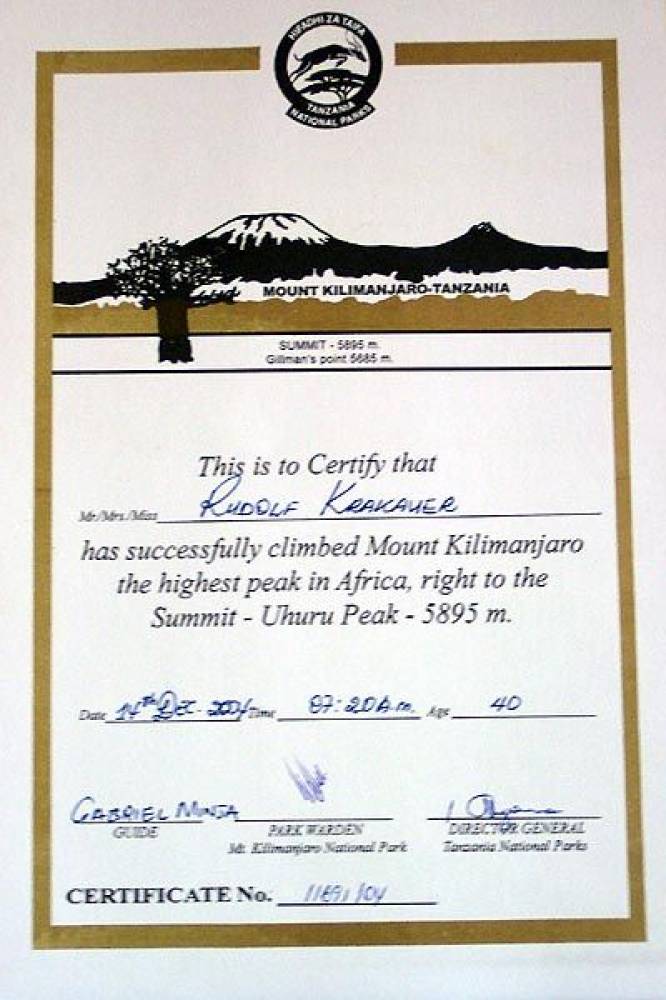 HIFADHI ZA TAIFA
TANZANIA
NATIONAL PARKS
MOUNT KILIMANJARO-TANZANIA
SUMMIT - 5895 m.
Gillman's point 5685 m.
This is to Certify that
Mr/Mrs/Miss RUDOLF KRAKAUER
has successfully climbed Mount Kilimanjaro
the highest peak in Africa, right to the
Summit - Uhuru Peak - 5895 m.
Date 14th Dec. 2004 Time 07:20 A.m. Age 40
GABRIEL MINJA
GUIDE PARK WARDEN DIRECTOR GENERAL
Mt. Kilimanjaro National Park Tanzania National Parks
CERTIFICATE No.